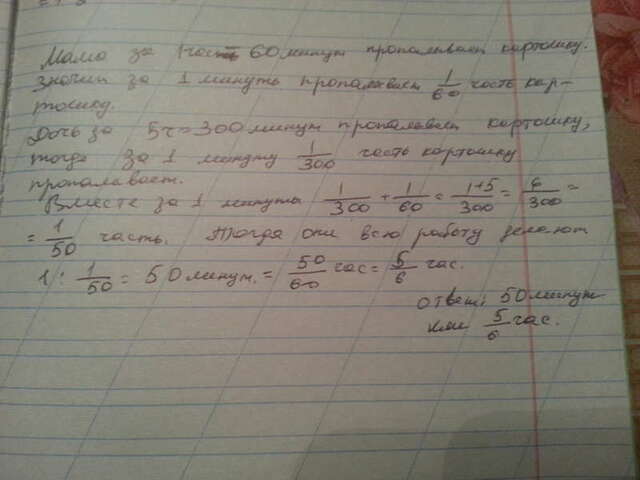 Мама за 1 час 60 минут пропалывает картошку.
значит за 1 минуты пропалывает 1/60 часть кар-
тошку.
Дочь за 5ч=300 минут пропалывает картошку,
тогда за 1 минуту 1/300 часть картошку
пропалывает.
Вместе за 1 минуты 1/300 + 1/60 = 1+5/300 = 6/300 =
= 1/50 часть. Тогда они всю работу делают
1 : 1/50 = 50 минут. = 50/60 час = 5/6 час.
ответ: 50 минут
или 5/6 час.